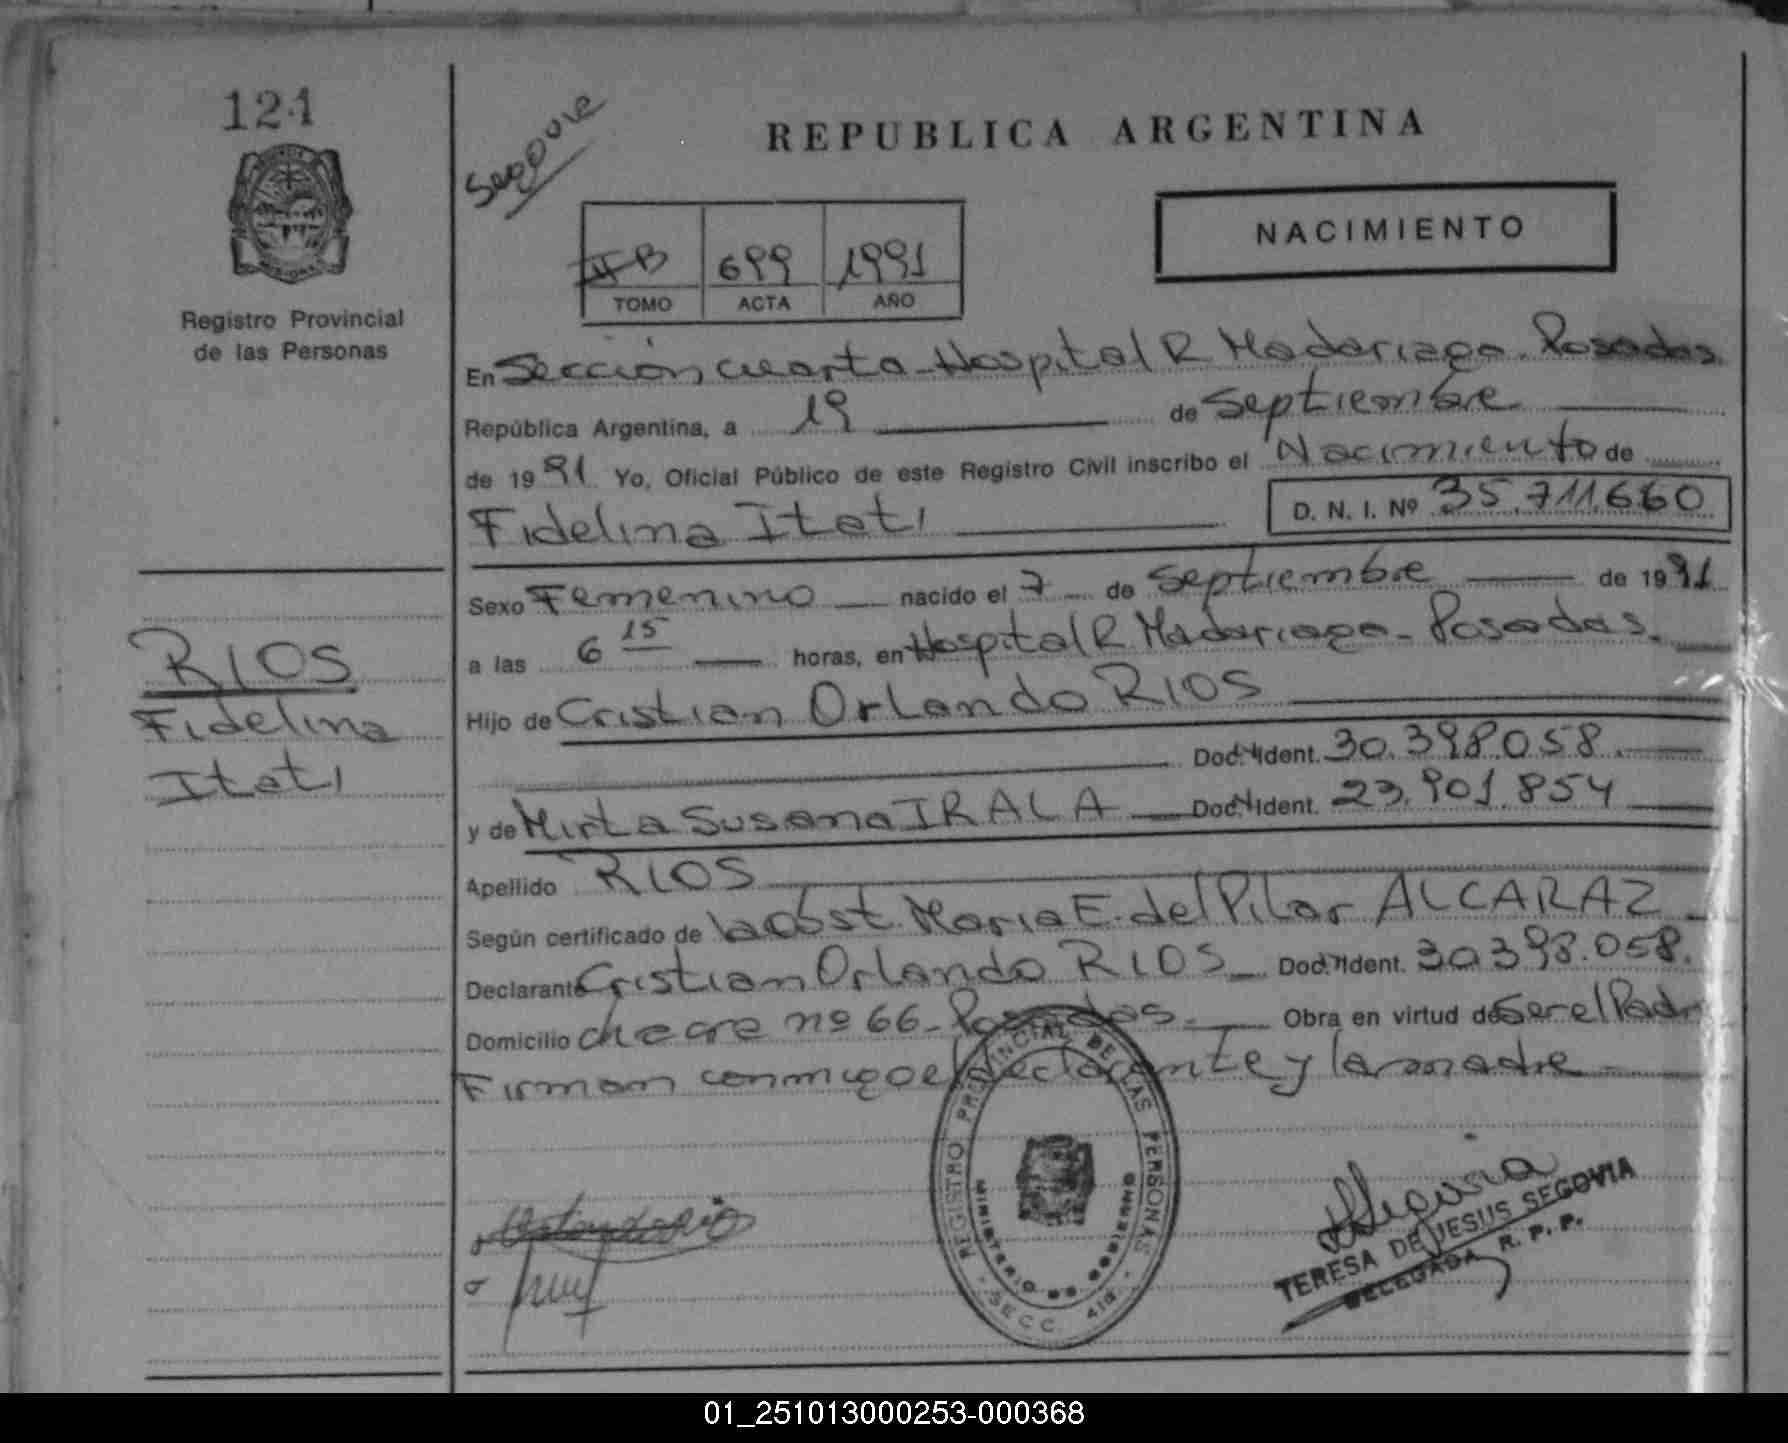 121
Registro Provincial
de las Personas
RIOS
Fidelina
Itati
Segovia
REPUBLICA ARGENTINA
NACIMIENTO
B 699 1991
TOMO ACTA AÑO
En Sección cuarta - Hospital R Madariaga. Posadas
República Argentina, a 19 de Septiembre
de 1991 Yo, Oficial Público de este Registro Civil inscribo el Nacimiento de
Fidelina Itati D. N. I. Nº 35.711.660
Sexo Femenino nacido el 7 de Septiembre de 1991
a las 6 15 horas, en Hospital R Madariaga - Posadas.
Hijo de Cristian Orlando RIOS
Doc. Ident. 30.398.058
y de Mirta Susana IRALA Doc. Ident. 23.901.854
Apellido RIOS
Según certificado de la obst. Maria E. del Pilar ALCARAZ
Declarante Cristian Orlando RIOS Doc. Ident. 30398.058.
Domicilio chacra nº 66 - Posadas. Obra en virtud de Ser el Padre
Firman conmigo el declarante y la madre
REGISTRO PROVINCIAL DE LAS PERSONAS
MINISTERIO DE GOBIERNO
SECC. 4ta
TERESA DE JESUS SEGOVIA
DELEGADA R. P. P.
01_251013000253-000368